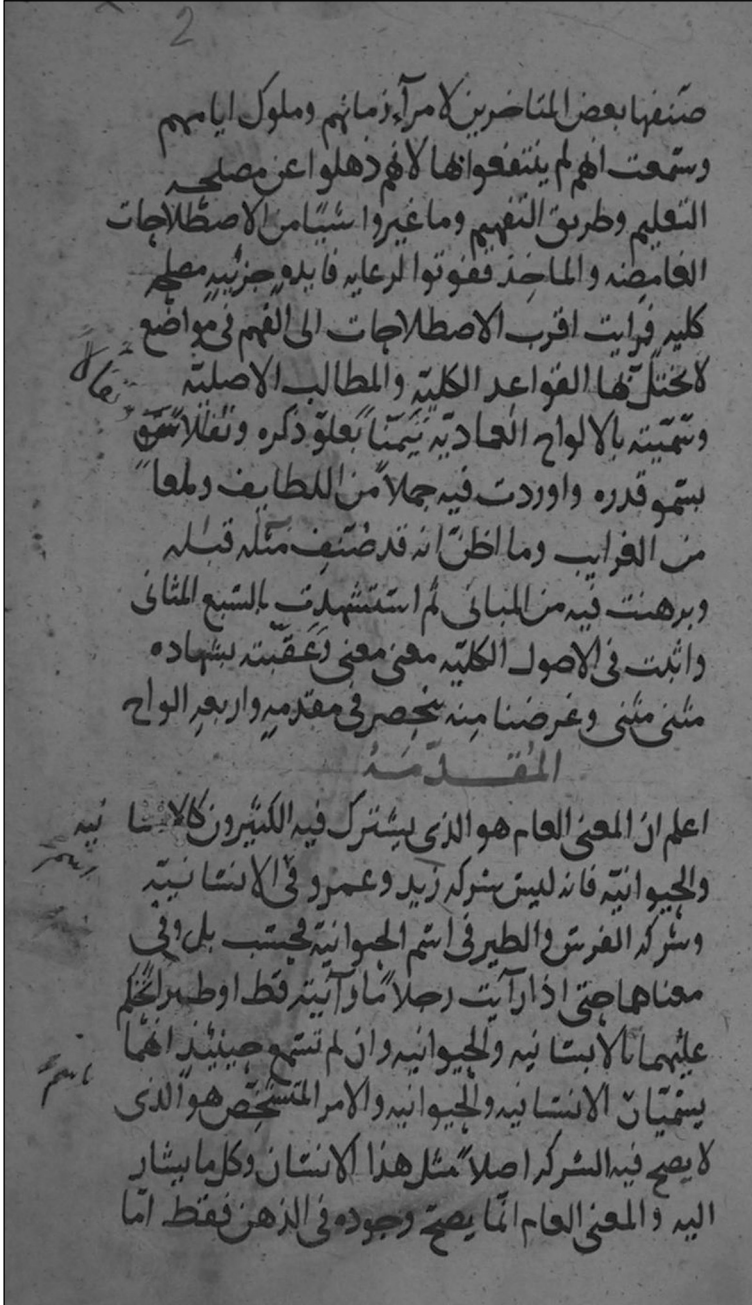 2
صنفها بعض المتاخرين لامرآء زمانهم وملوك ايامهم
وسمعت انهم لم ينتفعوا بها لانهم ذهلوا عن مصلحه
التعليم وطريق التفهيم وما غيروا شيئا من الاصطلاحات
الغامضه والماخذ ففوتوا لرعايه فايدهٍ جزئيهٍ مصلحه
كليه فرايت اقرب الاصطلاحات الى الفهم فى مواضع
لا تختل بها القواعد الكليّه والمطالب الاصليّه
وسمّيته بالالواح العماديّه تيمّناً بعلوّ ذكره وتفالاً
بسموّ قدره واوردت فيه جملاً من اللطايف ولمعاً
من الغرايب وما اظنّ انه قد صُنّف مثله قبله
وبرهنت فيه من المبانى ثم استشهدت بالسبع المثانى
واثبت فى الاصول الكليّه معنى معنى وعقّبته بشهاده
مثنى مثنى وغرضنا منه ينحصر فى مقدمهٍ واربعه الواح
المقدّمه
اعلم ان المعنى العام هو الذى يشترك فيه الكثيرون كالانسانيه
والحيوانيّه فانه ليس شركه زيد وعمرو فى الانسانيّه
وشركه الفرس والطير فى اسم الحيوانيّه فحسب بل وفى
معناهما حتى اذا رآيت رجلاً ما وآنيته فقط او طيرا تحكم
عليهما بالانسانيه والحيوانيه وان لم تسمع حينئذٍ انهما
يسمّيان الانسانيه والحيوانيه والامر المتشخّص هو الذى
لا يصح فيه الشركه اصلاً مثل هذا الانسان وكل ما يشار
اليه والمعنى العام انّما يصحّ وجوده فى الذهن فقط امّا